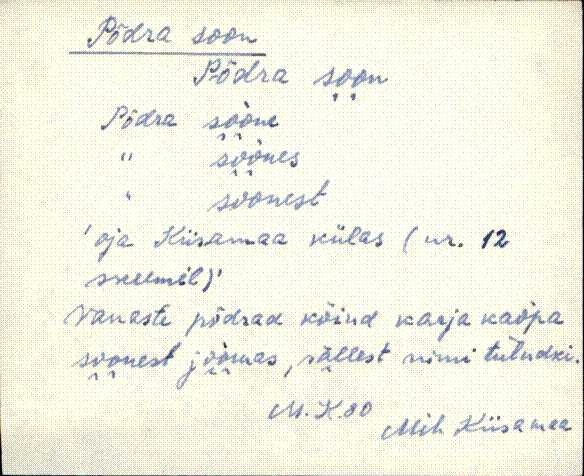 Põdra soon
Põdra soon
Põdra soone
" soones
" soonest
'oja Kiisamaa külas (nr. 12
skeemil)'
Vanaste põdrad kõind karja kaõpa
soonest joomas, sallest nimi tuludki.
M. K. 80
Mih Kiisamaa